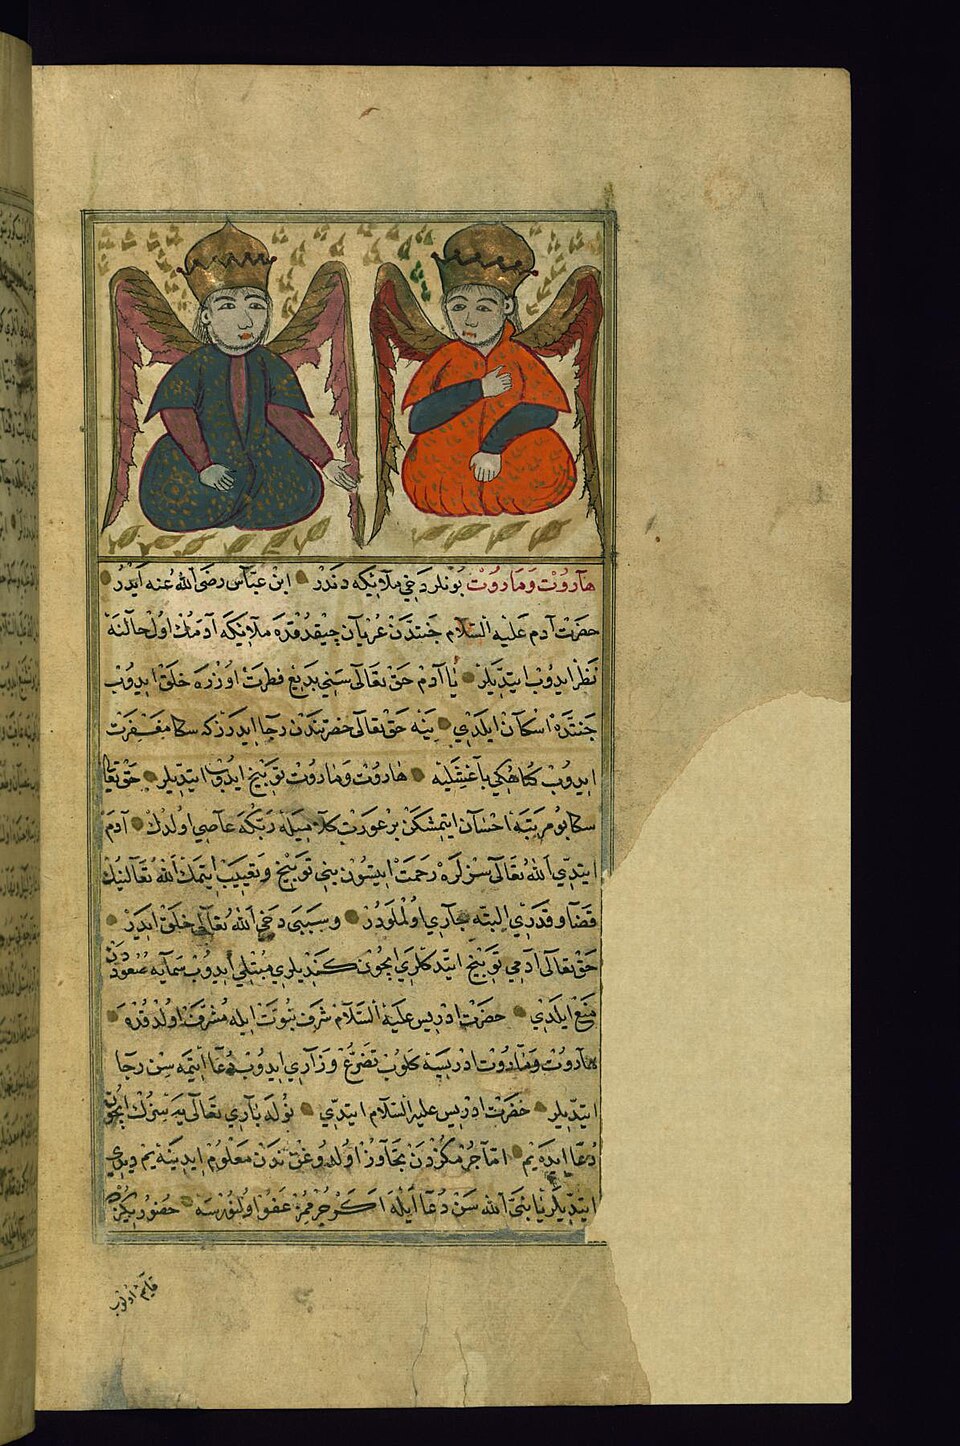 هاروت وماروت بونلر دخي ملائيكه دندر ابن عباس رضى الله عنه ايدر
حضرت آدم عليه السلام جنتدن عريان چيقدقده ملائيكه آدمك اول حالنه
نظر ايدوب ايتديلر يا آدم حق تعالى سني بديع فطرت اوزره خلق ايدوب
جنتده اسكان ايلدي ينه حق تعالى حضرتندن رجا ايدرز كه سكا مغفرت
ايدوب كناهكي باغشليه هاروت وماروت توبيخ ايدوب ايتديلر حق تعالى
سكا بو مرتبه احسان ايتمشكن بر عورت كلاميله ربكه عاصي اولدك آدم
ايتدي الله تعالى سزلره رحمت ايتسون بني توبيخ وتعييب ايتمك الله تعالينك
قضا وقدري البته جاري اولملودر وسببى دخي الله تعالى خلق ايدر
حق تعالى آدمي توبيخ ايتدكلري ايچون كنديلري مبتلي ايدوب سمايه صعوددن
منع ايلدي حضرت ادريس عليه السلام شرف نبوت ايله مشرف اولدقده
هاروت وماروت ادريسه كلوب تضرع وزاري ايدوب دعا ايتمه سن رجا
ايتديلر حضرت ادريس عليه السلام ايتدي نوله باري تعالى يه سزك ايچون
دعا ايده يم اما جرمكزدن تجاوز اولدوغن ندن معلوم ايدينه يم ديدي
ايتديلر يا نبى الله سن دعا ايله اكر جرممز عفو اولنورسه حضوريكزده
قايم اولوب